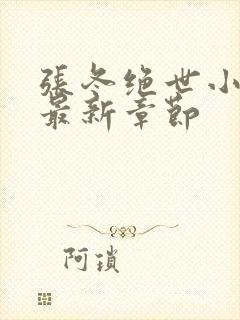 張冬绝世小
最新章節
阿瑣